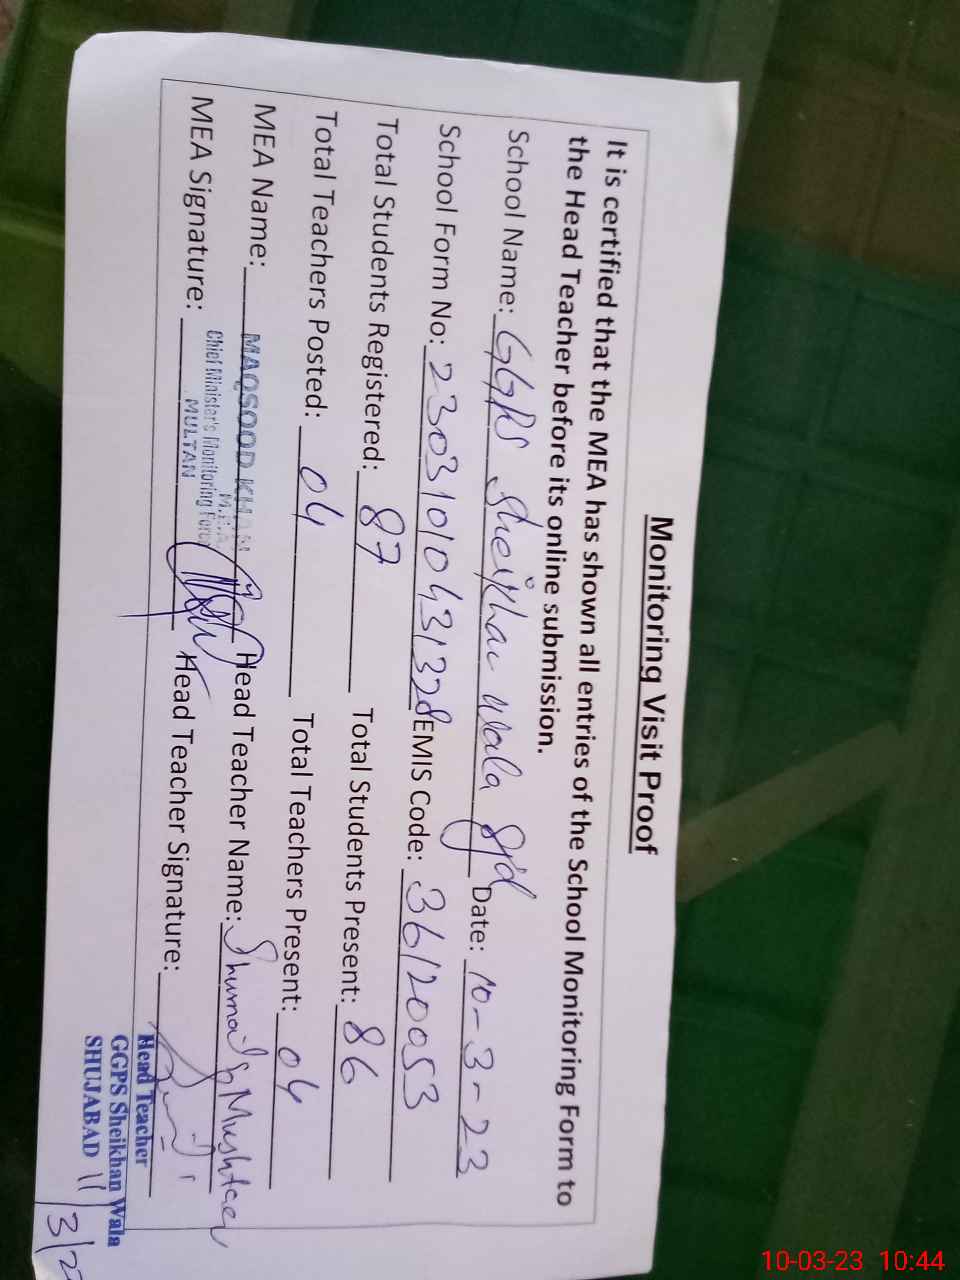 Monitoring Visit Proof
It is certified that the MEA has shown all entries of the School Monitoring Form to
the Head Teacher before its online submission.
School Name: GGPS Sheikhan Wala Sjd Date: 10-3-23
School Form No: EMIS Code: 36120053
Total Students Registered: 87 Total Students Present: 86
Total Teachers Posted: 04 Total Teachers Present: 04
MEA Name: MAQSOOD KHAN Head Teacher Name:
M.E.A
Chief Minister's Monitoring Force
MULTAN
MEA Signature: Head Teacher Signature:
Head Teacher
GGPS Sheikhan Wala
SHUJABAD
10-03-23 10:44